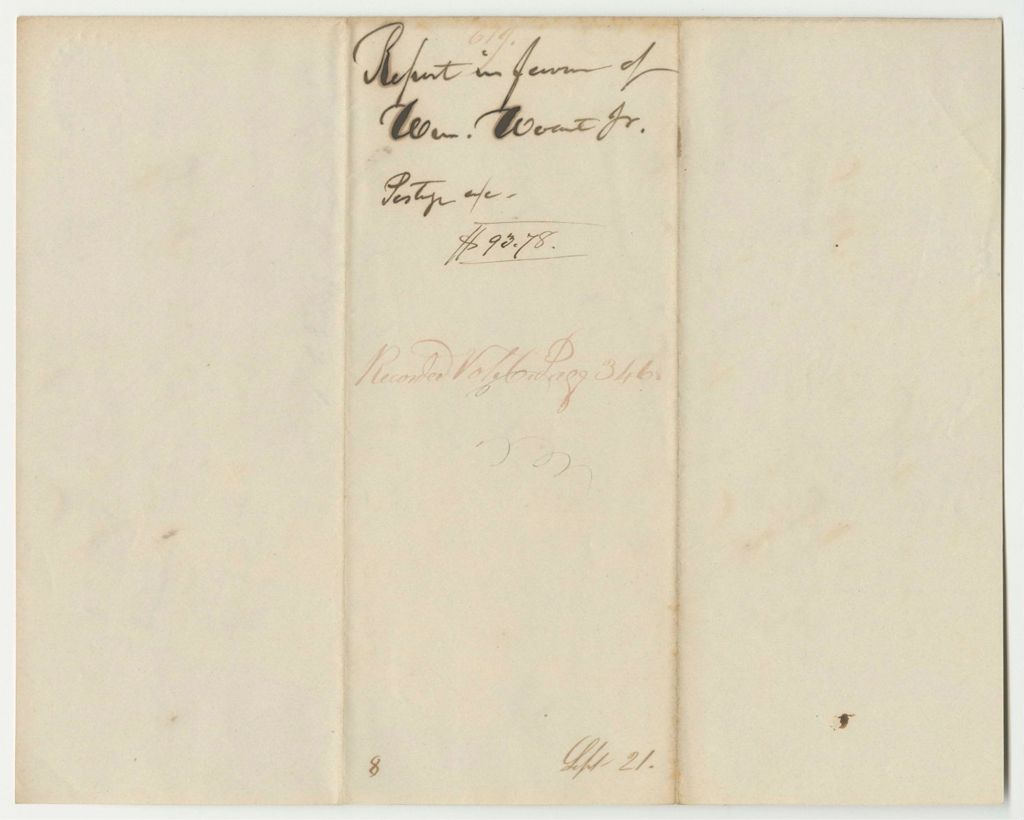 619.
Report in favour of
Wm. Woart Jr.
Postage a/c -
$93.78.
Recorded Vol. Page 346.
8
Sept 21.